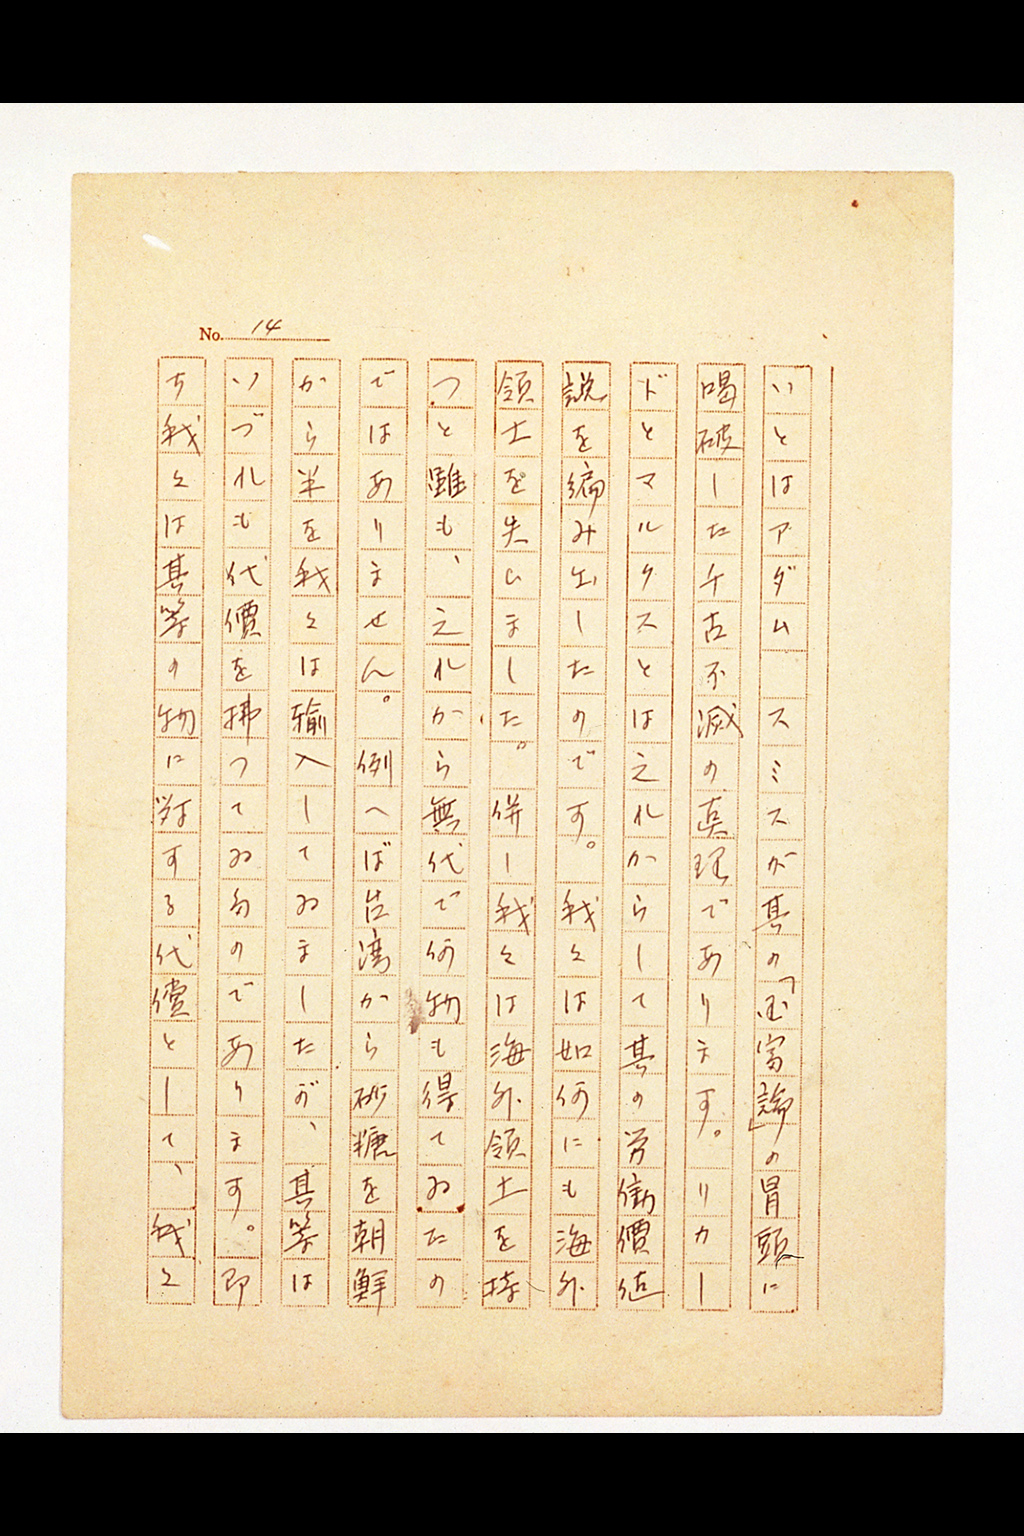 No. 14
いとはアダム スミスが其の「国富論」の冒頭に
喝破した千古不滅の真理であります。リカー
ドとマルクスとは之れからして其の労働價値
説を編み出したのです。我々は如何にも海外
領土を失ひました。併し我々は海外領土を持
つと雖も、之れから無代で何物も得てゐたの
ではありません。例へば台湾から砂糖を朝鮮
から米を我々は輸入してゐましたが、其等は
いづれも代價を拂つてゐるのであります。即
ち我々は其等の物に対する代償として、我々